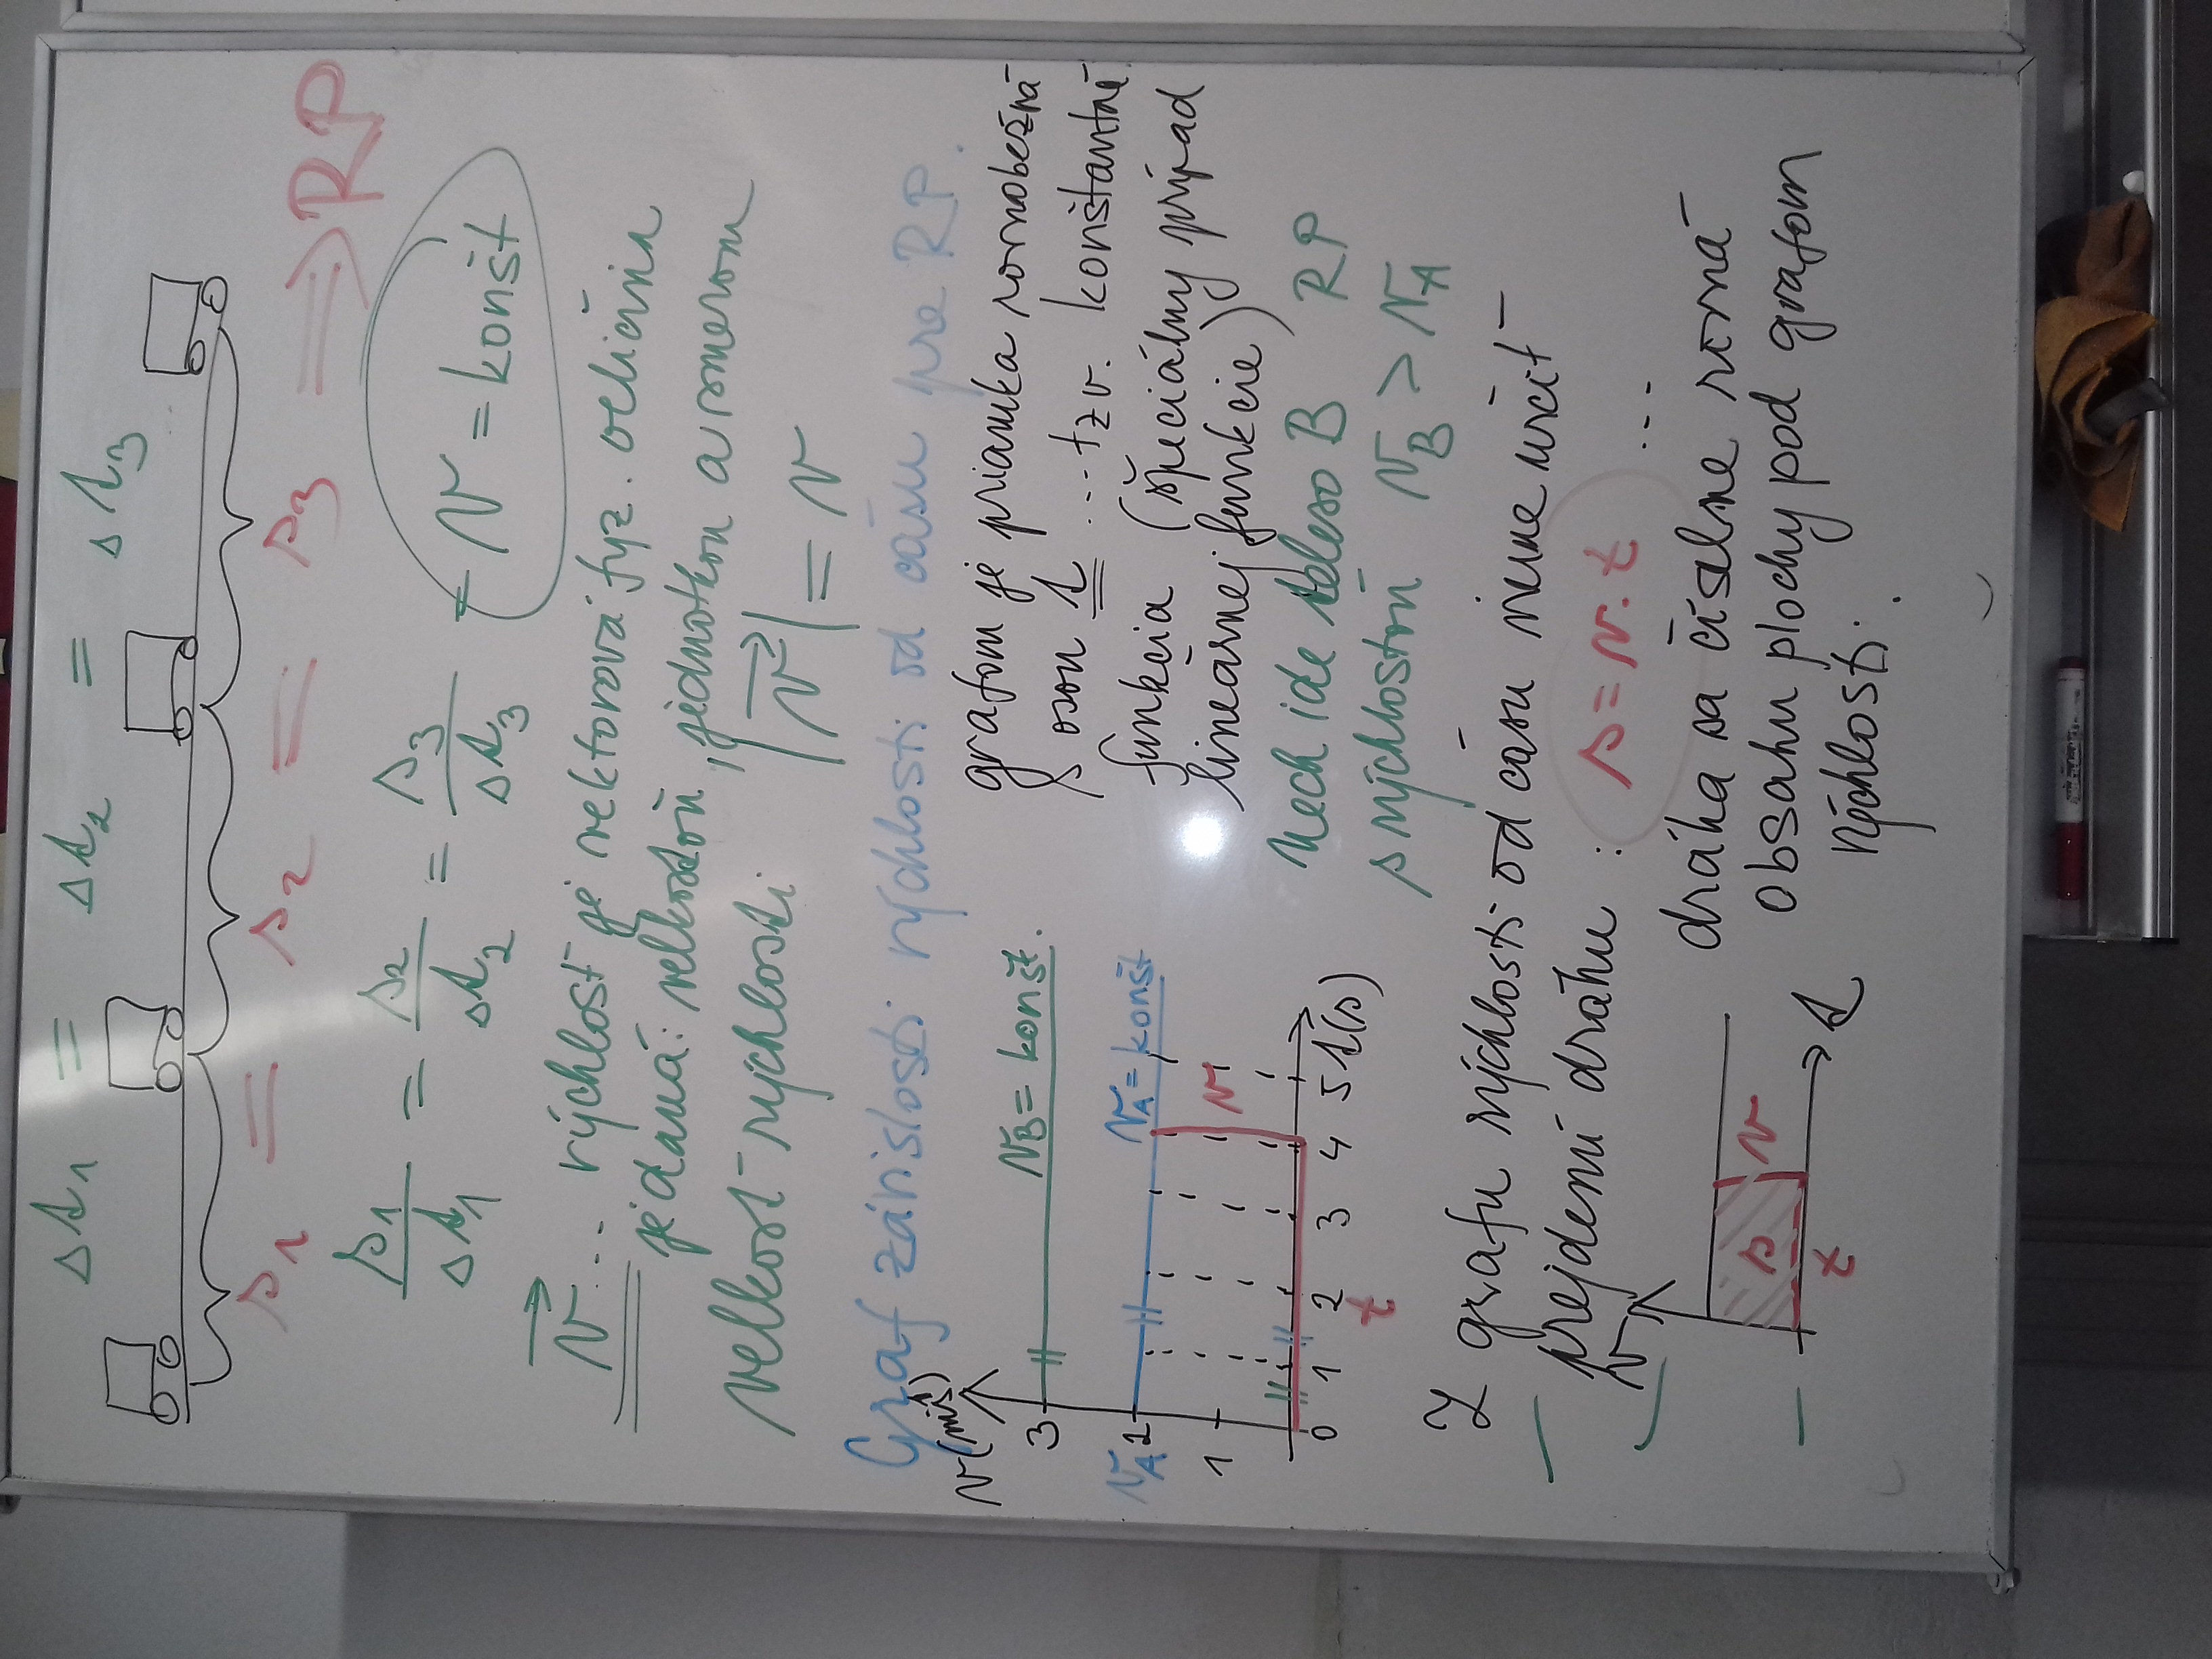 Δt₁ = Δt₂ = Δt₃
s₁ = s₂ = s₃ ⇒ RP
s₁/Δt₁ = s₂/Δt₂ = s₃/Δt₃ = v = konšt
v⃗ ... rýchlosť je vektorová fyz. veličina
je daná: veľkosťou, jednotkou a smerom
veľkosť rýchlosti |v⃗| = v
Graf závislosti rýchlosti od času pre RP.
v(m/s)
3
vB = konšt.
vA 2
vA = konšt
1
v
0 1 2 3 4 5 t(s)
t
grafom je priamka rovnobežná
s osou t ... tzv. konštantná
funkcia (špeciálny prípad
lineárnej funkcie)
Nech ide teleso B RP
s rýchlosťou vB > vA
Z grafu rýchlosti od času vieme určiť
prejdenú dráhu : s = v.t ...
v
s v
t
t
dráha sa číselne rovná
obsahu plochy pod grafom
rýchlosti.